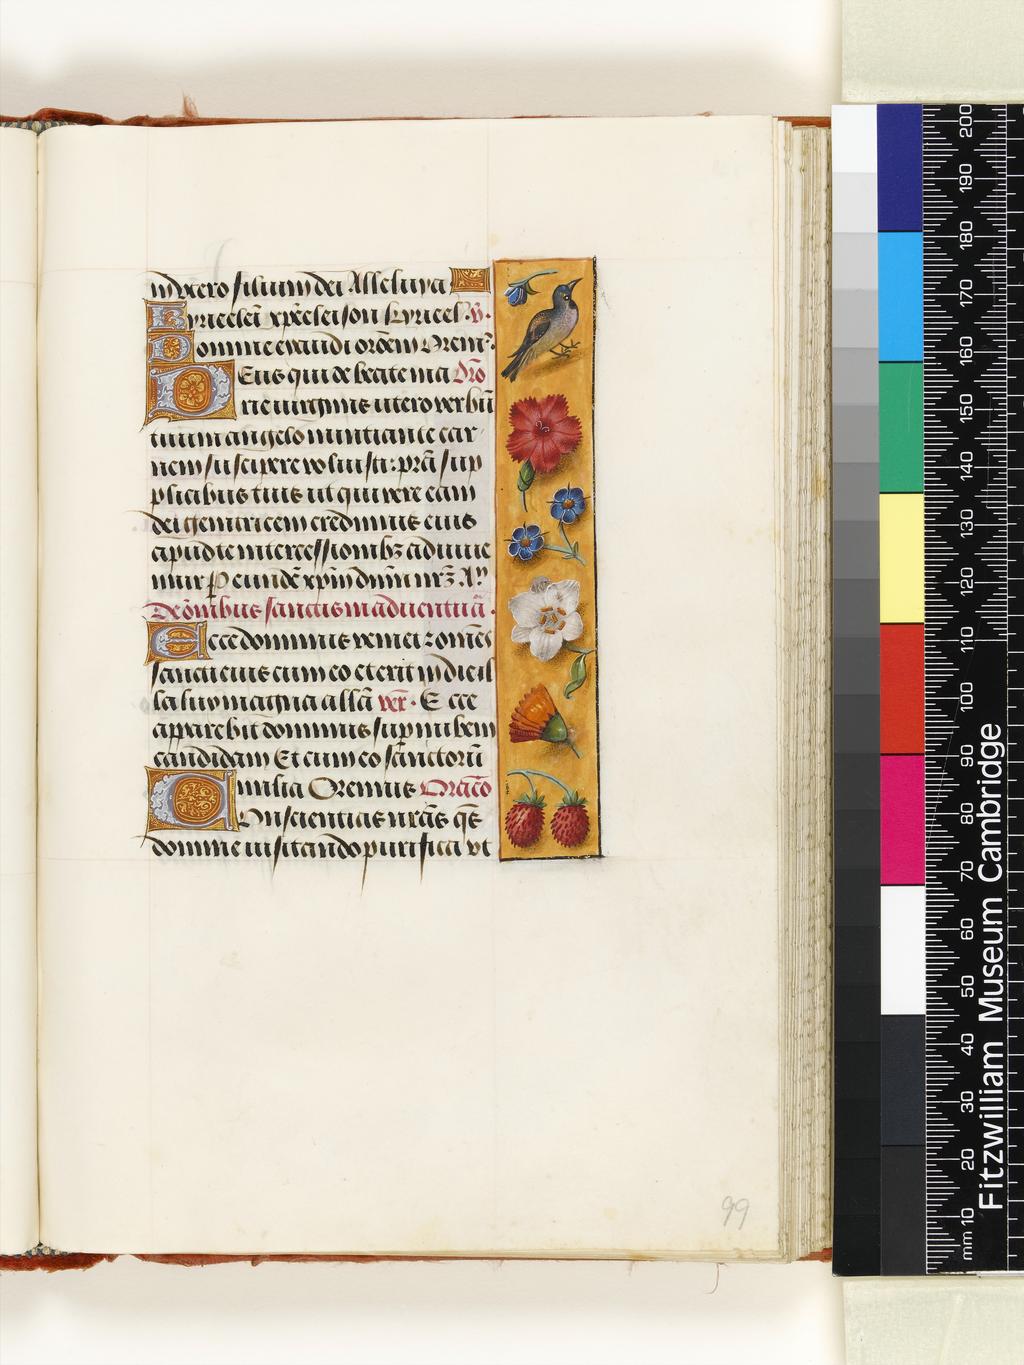 in vtero filium dei Alleluya
Kyrieelei xp̄eeleison kyrieel' .v̄.
Domine exaudi orōem Orem⁹.
Deus qui de beate ma Orō
rie virginis utero verbū
tuum angelo nuntiante car
nem suscipere voluisti: prā sup
plicibus tuis ut qui vere eam
dei genitricem credimus eius
apud te intercessionibꝫ adiuue
mur ꝑ eundē xp̄m dnm̄ nr̄ꝫ A
De ōmbus sanctis in aduentū.
Ecce dominus veniet ⁊ omēs
sancti eius cum eo et erit in die il
la lux magna allā ver. Ecce
apparebit dominus sup nubem
candidam Et cum eo sanctorū
milia Oremus Oracō
Conscientias nrās qs̄
domine visitando purifica vt
99
Fitzwilliam Museum Cambridge
mm 10 20 30 40 50 60 70 80 90 100 110 120 130 140 150 160 170 180 190 200